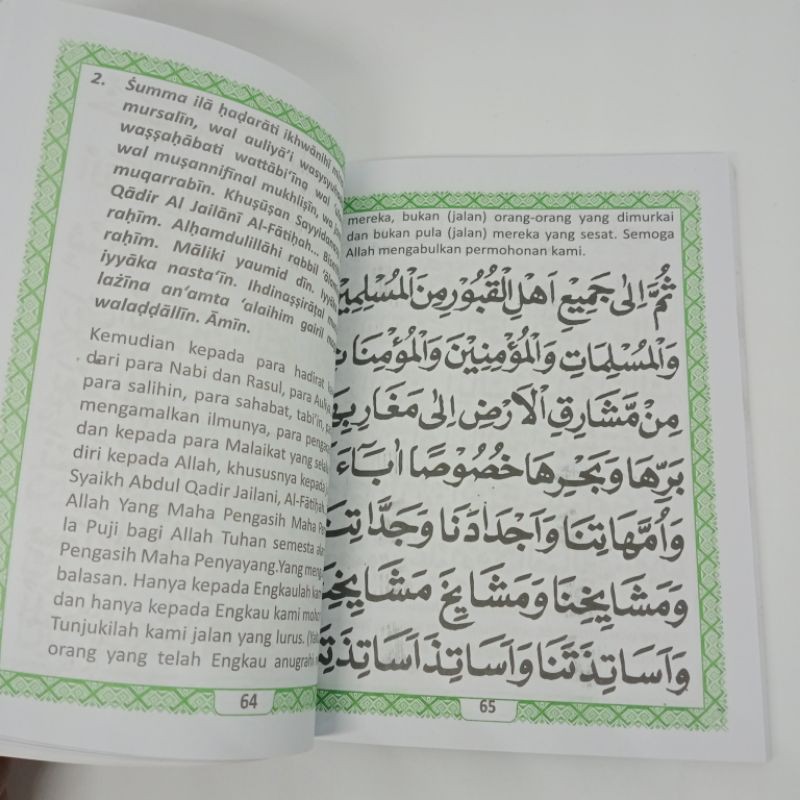 2. Śumma ilā ḥaḍarāti ikhwānihī
mursalīn, wal auliyā'i wasysyu
waṣṣaḥābati wattābi'īna wal
wal muṣannifīnal mukhliṣīn, wa
muqarrabīn. Khuṣūṣan Sayyidanasy
Qādir Al Jailānī Al-Fātiḥah...
raḥīm. Alḥamdulillāhi rabbil
raḥīm. Māliki yaumid dīn.
iyyāka nasta'īn. Ihdinaṣṣirāṭal
lażīna an'amta 'alaihim gairil
walaḍḍāllīn. Āmīn.
Kemudian kepada para hadirat
dari para Nabi dan Rasul, para
para salihin, para sahabat, tabi'in,
mengamalkan ilmunya, para
dan kepada para Malaikat yang
diri kepada Allah, khususnya kepada
Syaikh Abdul Qadir Jailani, Al-Fātiḥah
Allah Yang Maha Pengasih Maha
la Puji bagi Allah Tuhan semesta
Pengasih Maha Penyayang.Yang
balasan. Hanya kepada Engkaulah
dan hanya kepada Engkau kami
Tunjukilah kami jalan yang lurus.
orang yang telah Engkau
64
mereka, bukan (jalan) orang-orang yang dimurkai
dan bukan pula (jalan) mereka yang sesat. Semoga
Allah mengabulkan permohonan kami.
ثُمَّ اِلٰى جَمِيْعِ اَهْلِ الْقُبُوْرِ مِنَ الْمُسْلِمِيْنَ
وَالْمُسْلِمَاتِ وَالْمُؤْمِنِيْنَ وَالْمُؤْمِنَاتِ
مِنْ مَّشَارِقِ الْاَرْضِ اِلٰى
بَرِّهَا وَبَحْرِهَا خُصُوْصًا اٰبَآءَ
وَاُمَّهَاتِنَا وَاَجْدَادَنَا وَجَدَّاتِنَا
وَمَشَايِخِنَا وَمَشَايِخَ مَشَايِخِنَا
وَاَسَاتِذَتَنَا وَاَسَاتِذَ اَسَاتِذَتِنَا
65